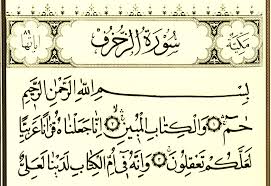 مكية سُورَةُ الزُّخْرُفِ آياتها
بِسْمِ اللَّهِ الرَّحْمَٰنِ الرَّحِيمِ
حمٓ ۝ وَالْكِتَابِ الْمُبِينِ ۝ إِنَّا جَعَلْنَاهُ قُرْآنًا عَرَبِيًّا
لَعَلَّكُمْ تَعْقِلُونَ ۝ وَإِنَّهُ فِي أُمِّ الْكِتَابِ لَدَيْنَا لَعَلِيٌّ